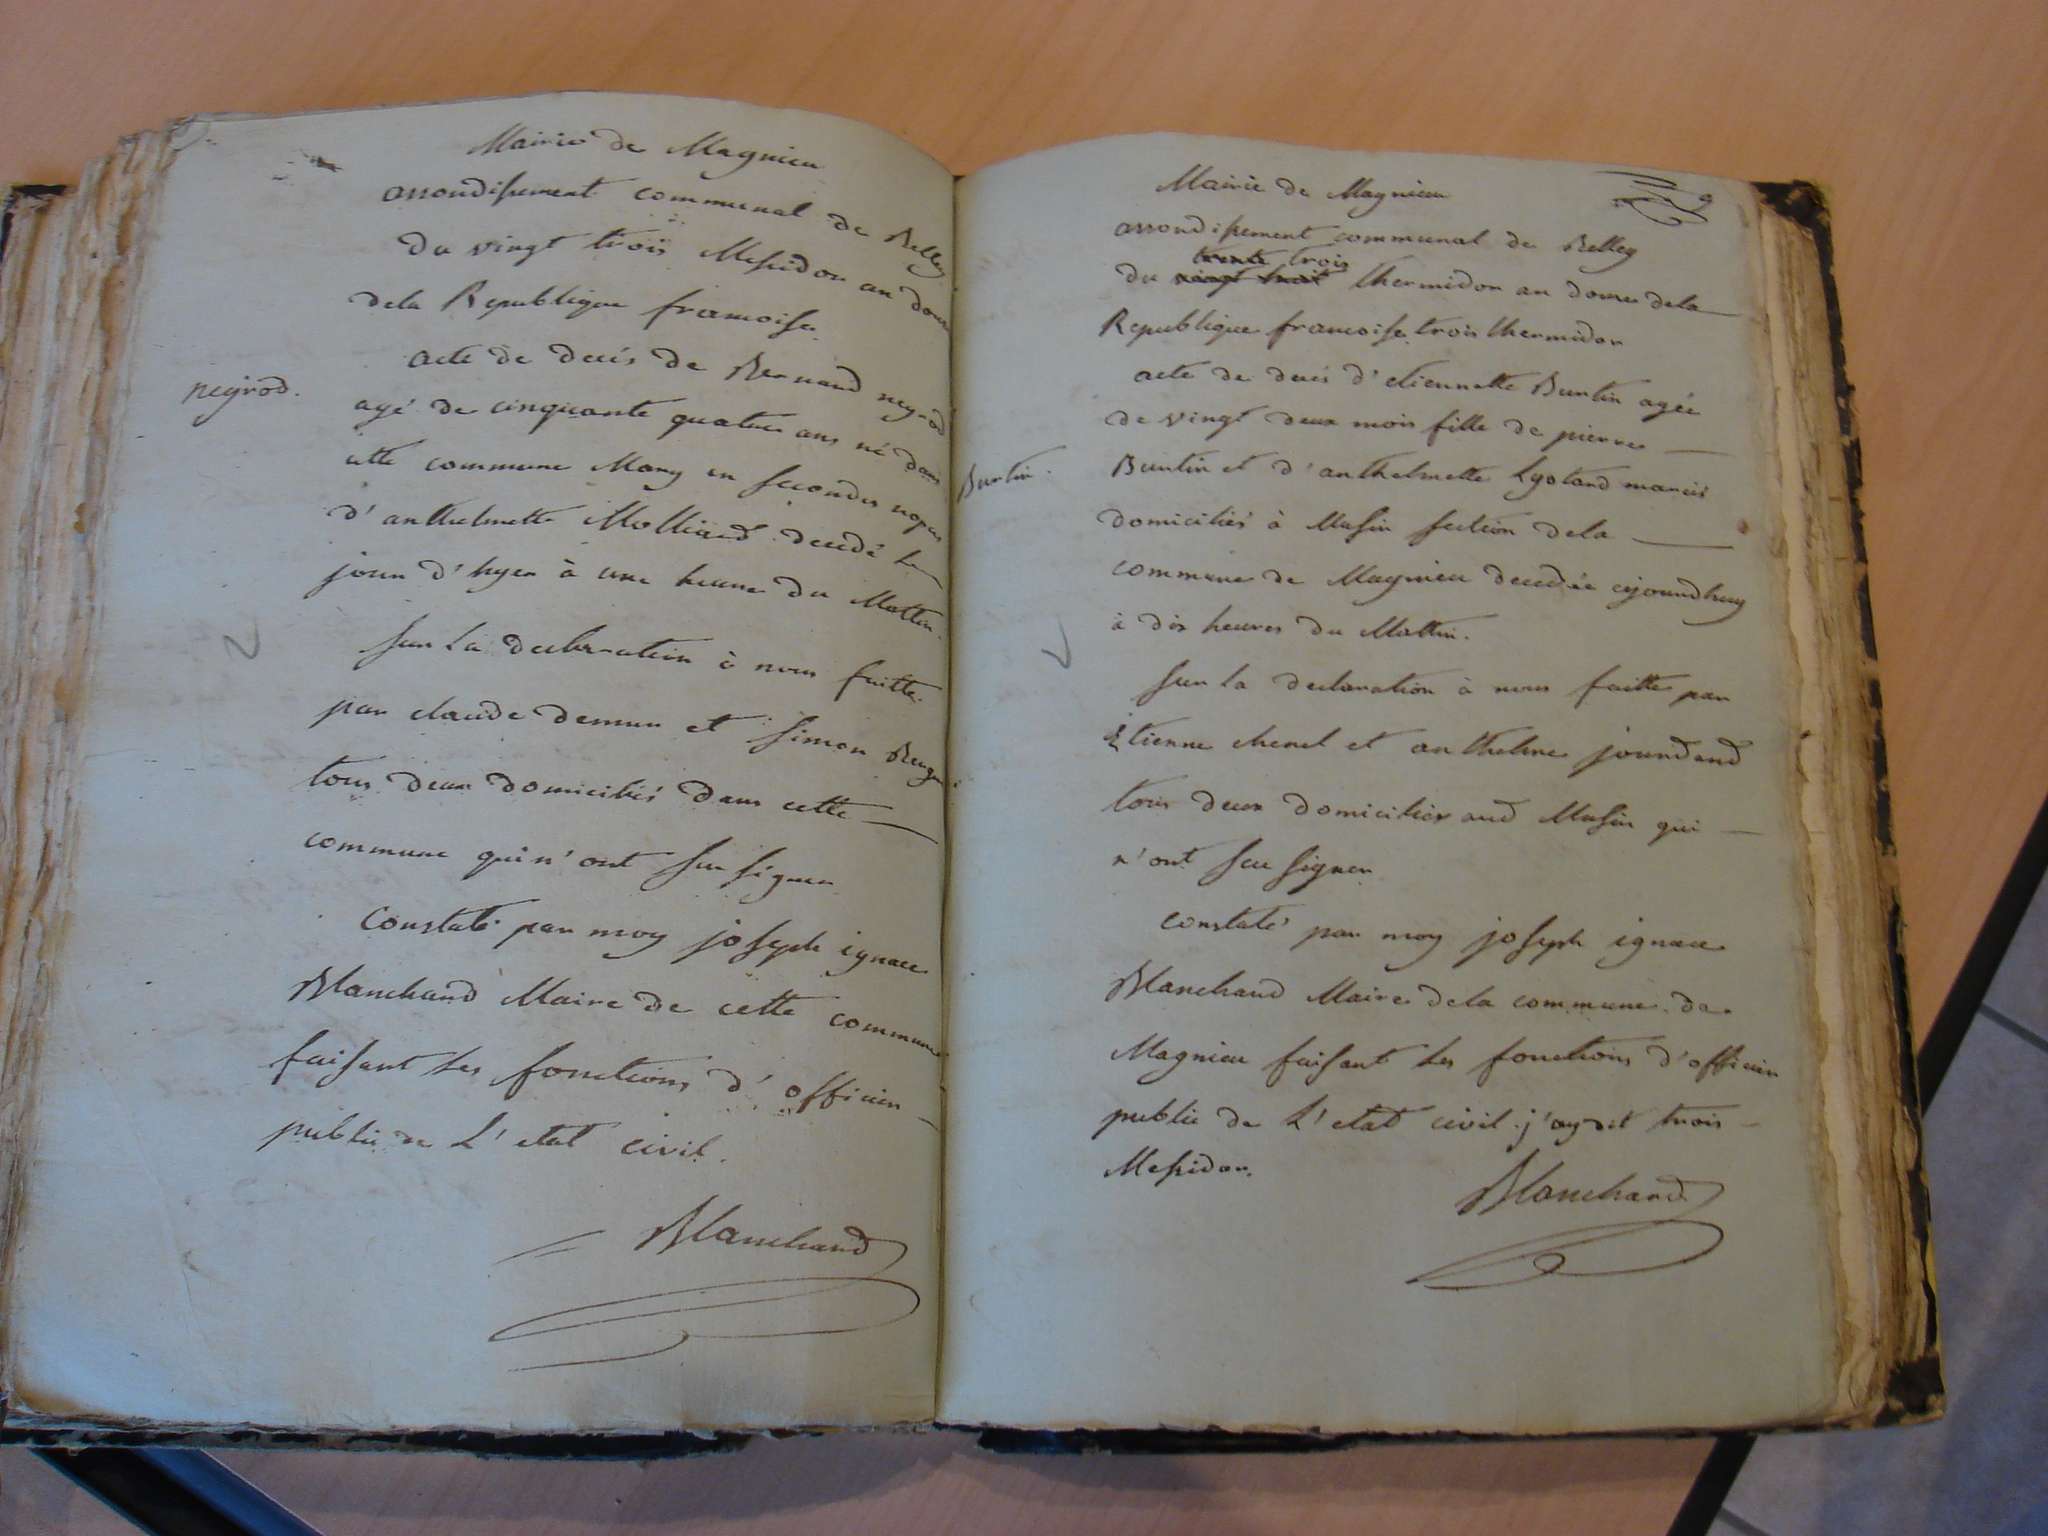 Mairie de Magnieu
arrondissement communal de Belley
du vingt trois Messidor an douze
dela Republique francoise
negrod.
acte de decés de Bernard negrod
agé de cinquante quatre ans né dans
cette commune Mary en secondes nopces
d'anthelmette Molliard decedé le
jour d'hyer à une heure du Mattin.
sur la declaration à nous faitte
par claude demur et simon
tous deux domiciliés dans cette
commune qui n'ont sceu signer
Constaté par moy joseph ignace
Blanchard Maire de cette commune
faisant les fonctions d'officier
public de L'etat civil.
Blanchard
9
Mairie de Magnieu
arrondissement communal de Belley
trente trois
du vingt huit thermidor an douze dela
Republique francoise trois thermidor
acte de decés d'etiennette Burtin agée
de vingt deux mois fille de pierre
Burtin.
Burtin et d'anthelmette Lyotard mariés
domiciliés à Musin section dela
commune de Magnieu decedée cejourdhuy
à dix heures du Mattin.
sur la declaration à nous faitte par
Etienne chenel et anthelme jourdand
tous deux domiciliés aud Musin qui
n'ont sceu signer
constaté par moy joseph ignace
Blanchard Maire dela commune de
Magnieu faisant les fonctions d'officier
public de L'etat civil. j'ay dit trois
Messidor.
Blanchard